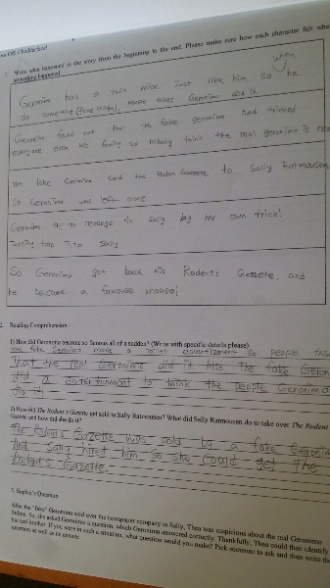 Write what happened in the story from the beginning to the end. Please make sure how each character felt when
something happened
when
Geronimo has a twin mice just like him so he
do something
Geronimo did it
Geronimo found out that the fake geronimo had tricked
everyone even his family so nobody think the real geronimo is
the fake Geronimo sold the Rodent Gazette to Sally Ratmousen
So Geronimo was left alone
Geronimo revenge to Sally by her own trick!
Sally
So Geronimo got back his Rodents Gazzete, and
he became a famouse mouse!
2. Reading Comprehension
1) How did Geronimo become so famous all of a sudden? (Write with specific details please)
the fake Geronimo made a advertisement so people think
that the real Geronimo did it
did a to think the people Geronimo
did it!
2) How did The Rodent's Gazette get sold to Sally Ratmousen? What did Sally Ratmousen do to take over The Rodent's
Gazette and how did she do it?
The Rodent's Gazzette was sold by a fake Geronimo
and sally hired him so she could get The
Rodent's Gazette.
3. Sophie's Question
After the "fake" Geronimo sold over the newspaper company to Sally, Thea was suspicious about the real Geronimo
Stilton. So, she asked Geronimo a question, which Geronimo answered correctly. Thankfully, Thea could then identify
her real brother. If you were in such a situation, what question would you make? Pick someone to ask and then write the
answer as well